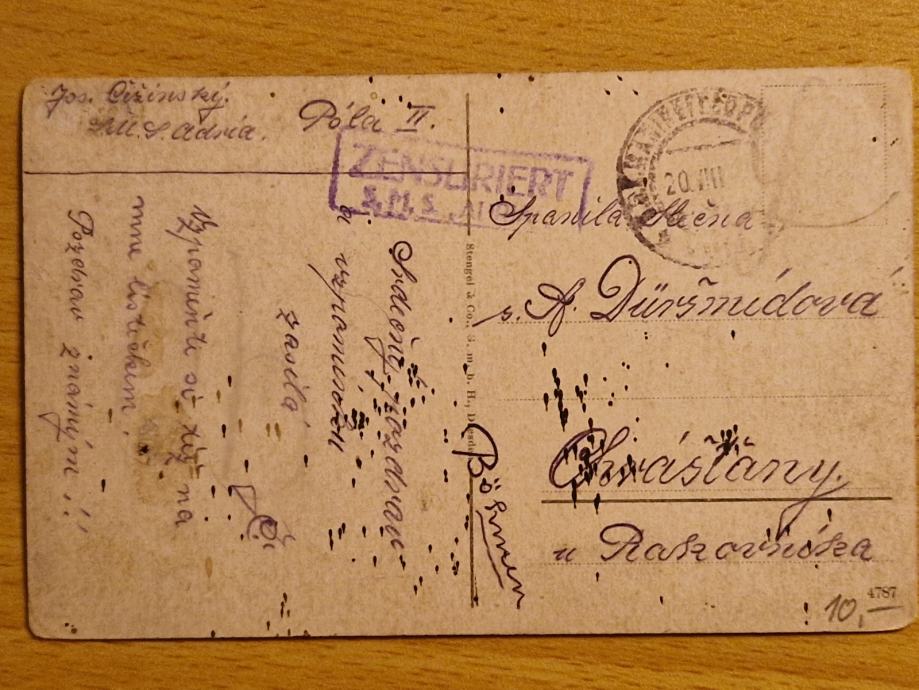 Jos. Čižinský.
S.M.S. Adria. Póla II.
ZENSURIERT
S.M.S.
Srdečný pozdrav
a vzpomínku
zasílá
J. Č.
Vzpomeňte si též na
mne lístečkem!
Pozdrav známým!!
Stengel & Co., G. m. b. H., Dresden
Böhmen
20. VIII
Spanilá slečna
s. A. Düršmídová
Chrášťany.
u Rakovníka
4787
10,—